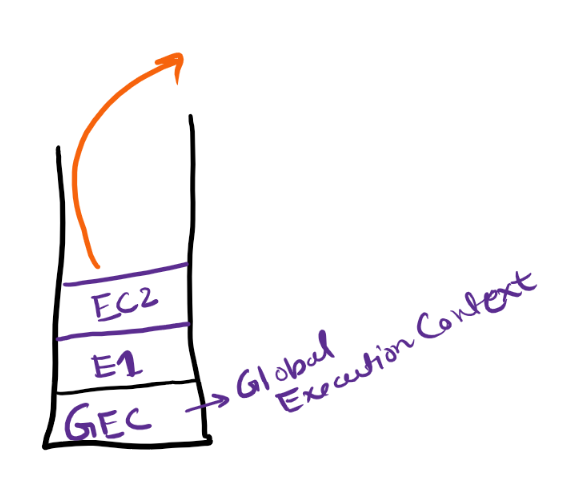 EC2
E1
GEC
Global
Execution Context